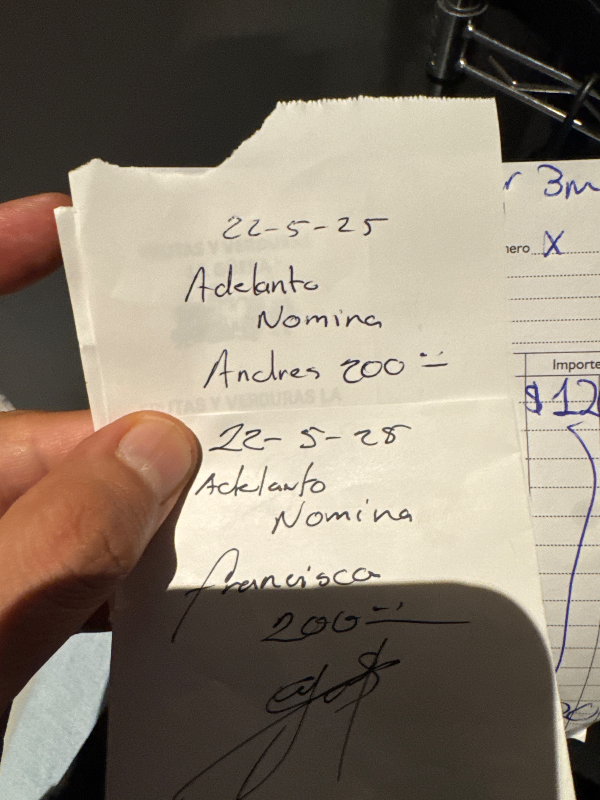 22-5-25
Adelanto
Nomina
Andres 200
22-5-25
Adelanto
Nomina
francisca
200
3m
nero X
Importe
$12